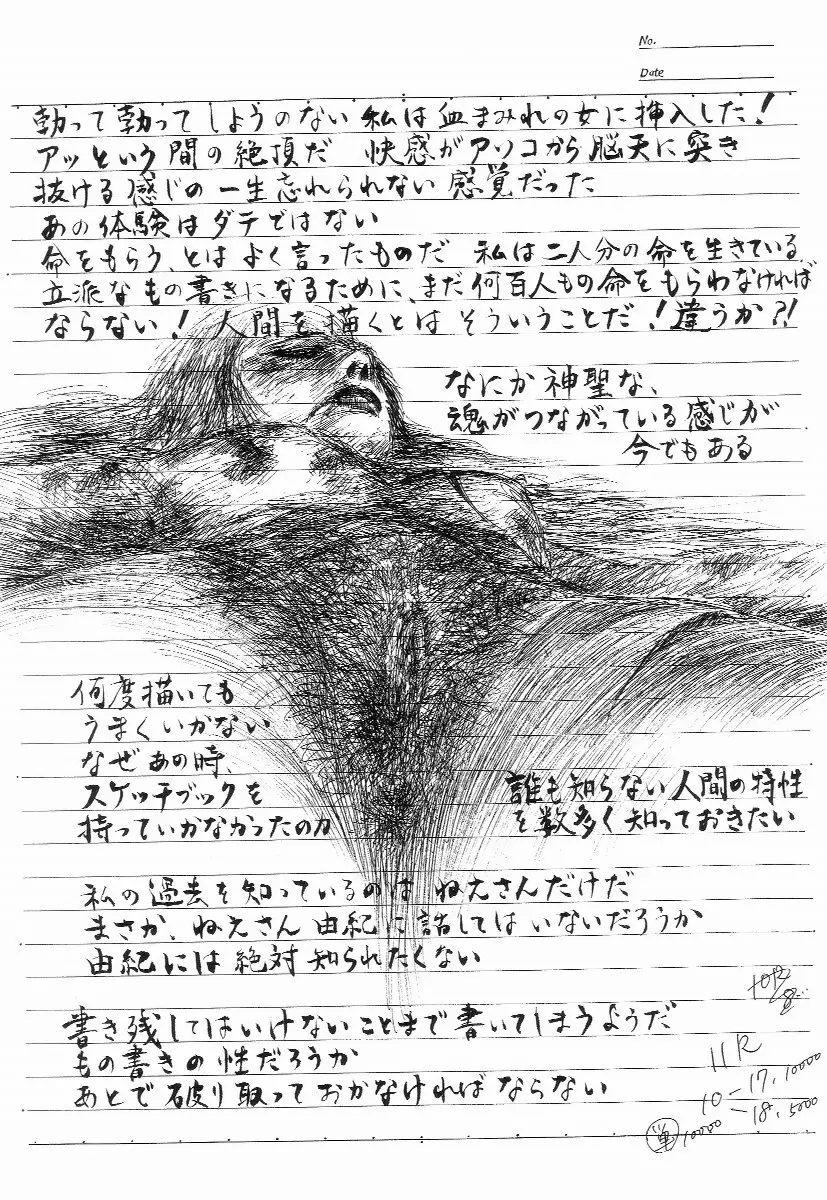 No.
Date
勃って勃ってしようのない 私は血まみれの女に挿入した!
アッという間の絶頂だ 快感がアソコから脳天に突き
抜ける感じの一生忘れられない感覚だった
あの体験はダテではない
命をもらう、とはよく言ったものだ 私は二人分の命を生きている
立派なもの書きになるために、まだ何百人もの命をもらわなければ
ならない!人間を描くとはそういうことだ!違うか?!
なにか神聖な、
魂がつながっている感じが
今でもある
何度描いても
うまくいかない
なぜあの時、
スケッチブックを
持っていかなかったのか
誰も知らない人間の特性
を数多く知っておきたい
私の過去を知っているのはねえさんだけだ
まさか、ねえさん由紀に話してはいないだろうか
由紀には絶対知られたくない
書き残してはいけないことまで書いてしまうようだ
もの書きの性だろうか
あとで破り取っておかなければならない
11R
10-17.10000
-18.5000
10000